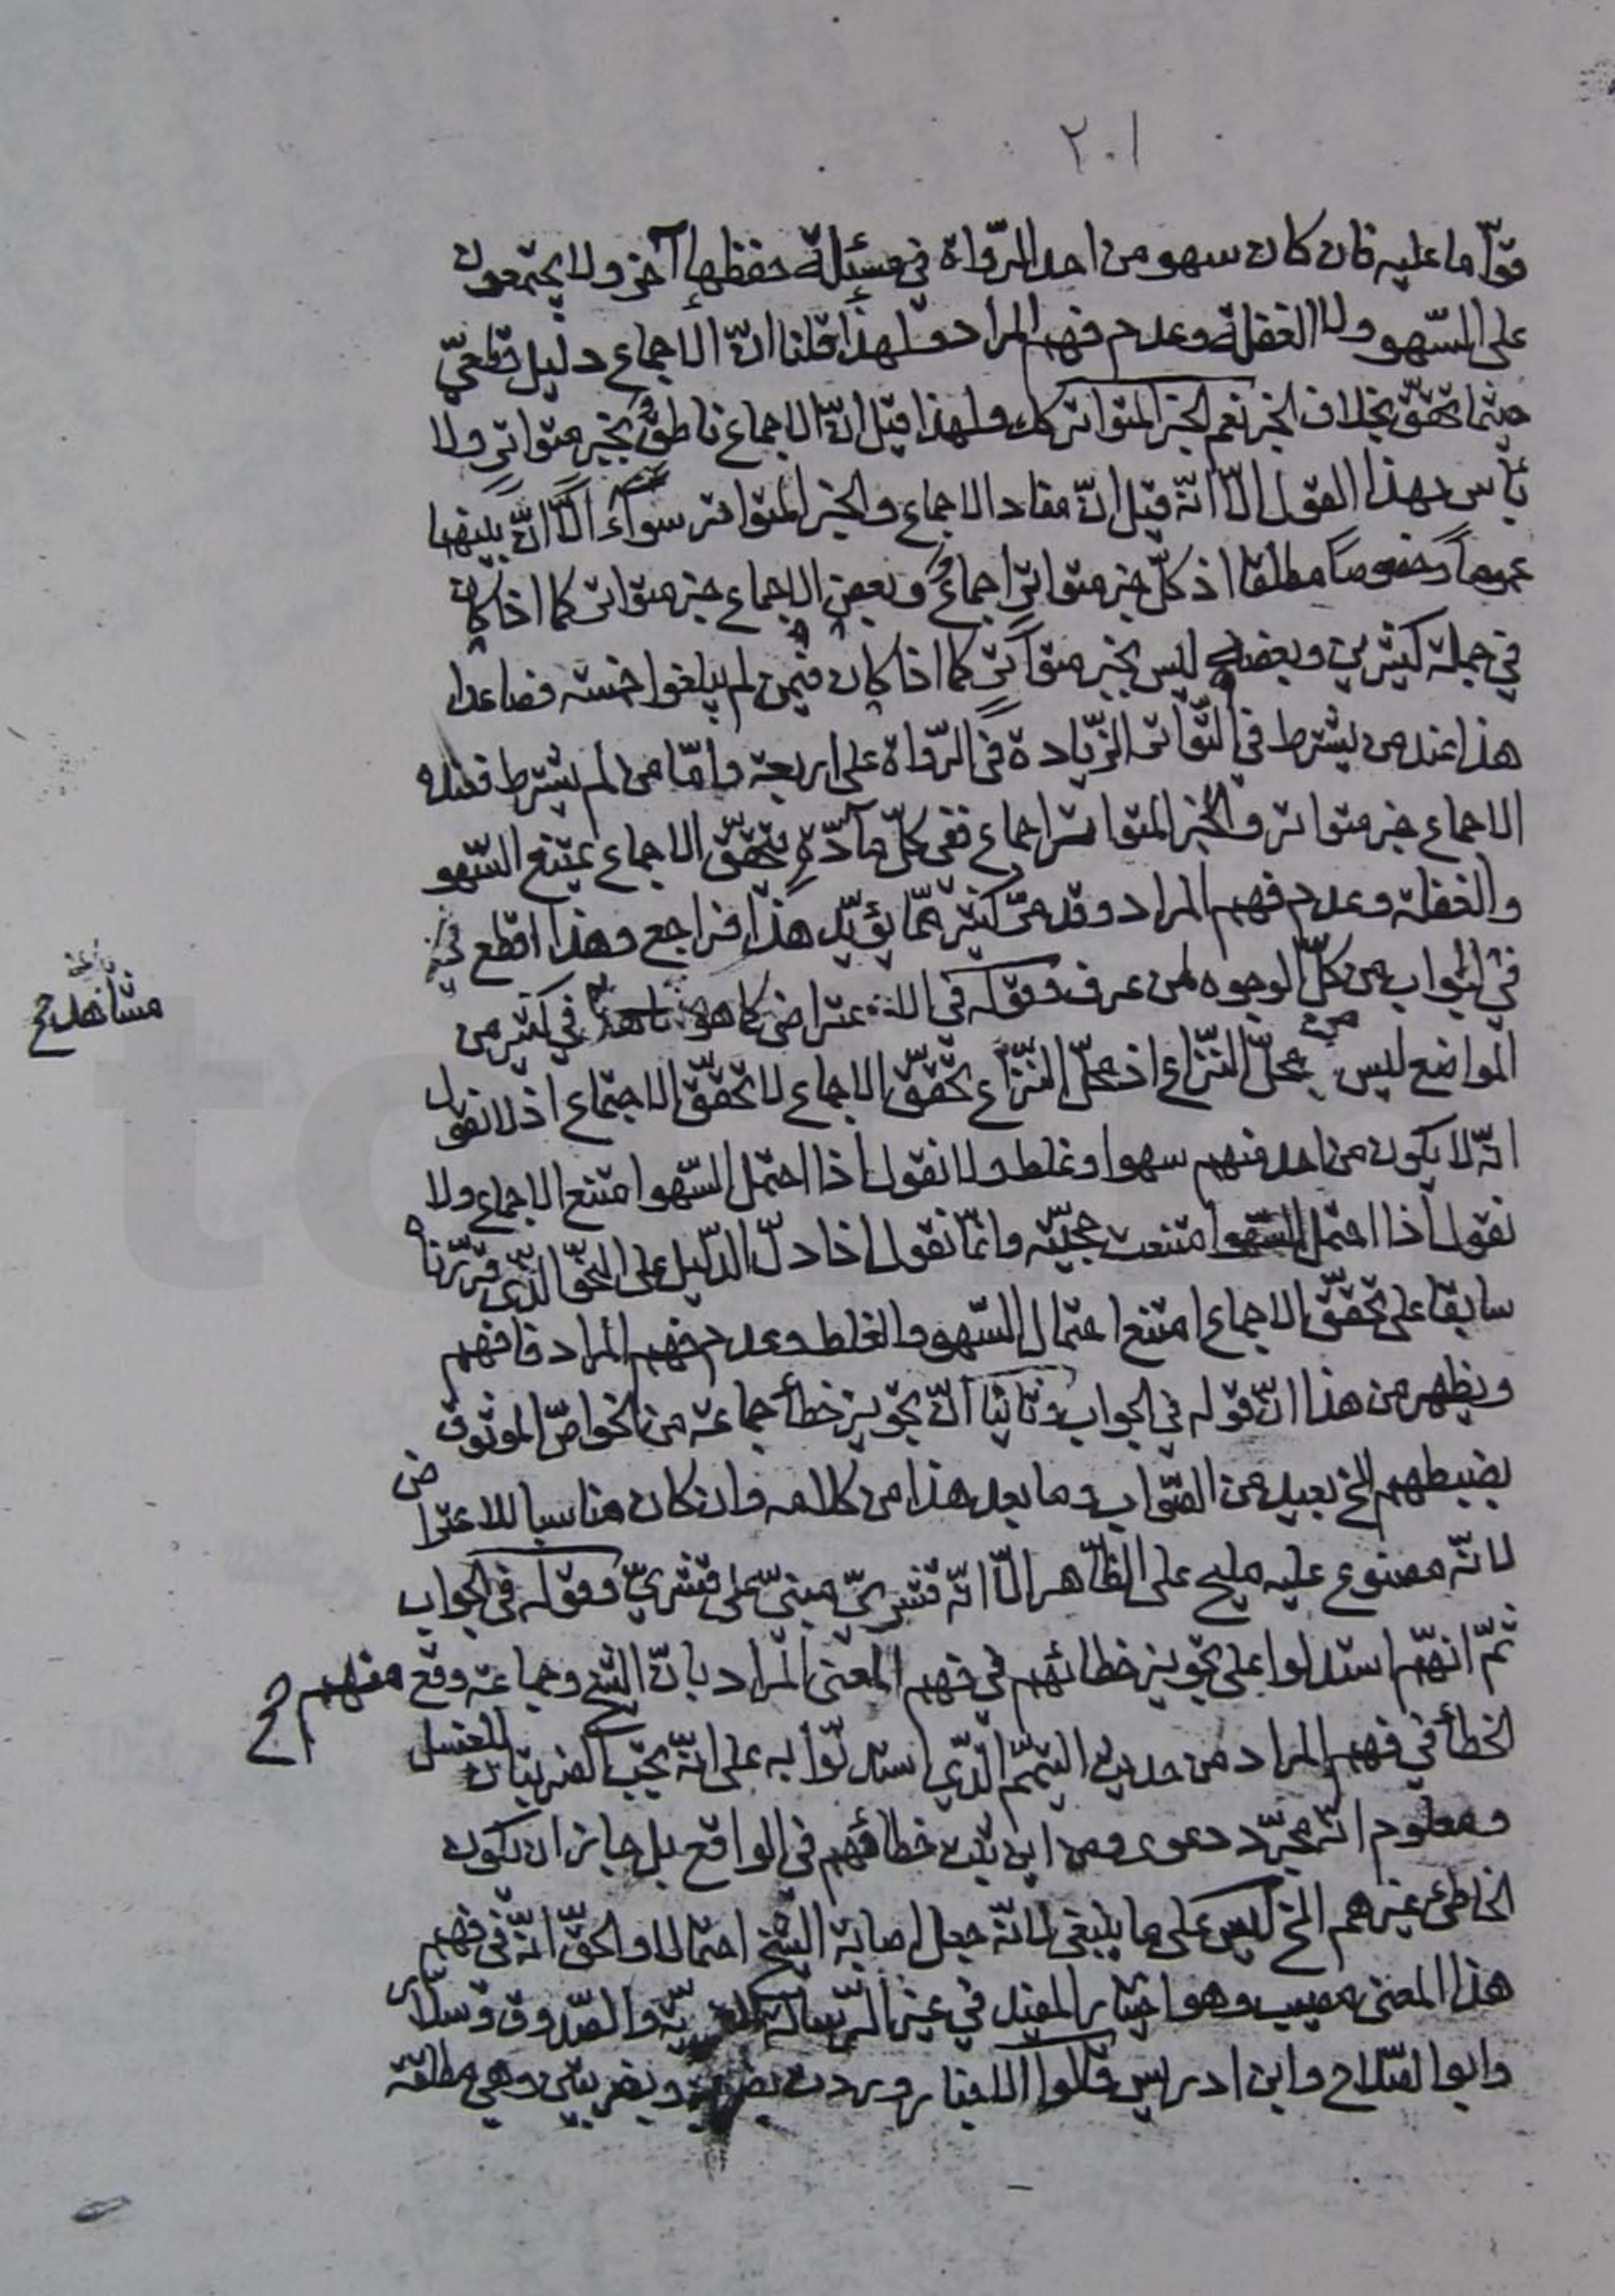 ٢٠١
قوّاما عليه فان كان سهو من احد الرّواة في مسئلة حفظها آخر ولا يجتمعون
على السّهو ولا الغفلة وعدم فهم المراد ولهذا قلنا انّ الاجماع دليل قطعيّ
حيثما تحقّق بخلاف الخبر نعم الخبر المتواتر كك ولهذا قيل انّ الاجماع ناطق بخبر متواتر ولا
بأس بهذا القول الّا انّه قيل انّ مفاد الاجماع والخبر المتواتر سواء الّا انّ بينهما
عموما وخصوصا مطلقا اذ كلّ خبر متواتر اجماع وبعض الاجماع خبر متواتر كما اذا كان
في جملة كثيرين وبعضه ليس بخبر متواتر كما اذا كان فيمن لم يبلغوا خمسة فصاعدا
هذا عند من يشترط في التّواتر الزّيادة في الرّواة على اربعة وامّا من لم يشترط فعنده
الاجماع خبر متواتر والخبر المتواتر اجماع ففي كلّ مادّة يتحقّق الاجماع يمتنع السّهو
والغفلة وعدم فهم المراد وقد مرّ كثير ممّا يؤيّد هذا فراجع وهذا اقطع
في الجواب من كلّ الوجوه لمن عرف وقوله في الاعتراض كما هو في كثير من
مشاهد
المواضع ليس من محلّ النّزاع اذ محلّ النّزاع تحقّق الاجماع لا تحقّق الاجتماع اذ لا نقول
انّه لا يكون من احد منهم سهو او غلط ولا نقول اذا احتمل السّهو امتنع الاجماع ولا
نقول اذا احتمل السّهو امتنعت حجيّته وانّما نقول اذا دلّ الدّليل على النحو الّذي قرّرناه
سابقا على تحقّق الاجماع امتنع احتمال السّهو والغلط وعدم فهم المراد فافهم
ويظهر من هذا انّ قوله في الجواب وثانيا انّ تجويز خطأ جماعة من الخواصّ الموثوق
بضبطهم الخ بعيد من الصّواب وما بعد هذا من كلامه وان كان مناسبا للاعتراض
لانّه مصنوع عليه مليح على الظّاهر الّا انّه قشريّ مبنيّ على قشريّ وقوله في الجواب
ثمّ انّهم استدلوا على تجويز خطائهم في فهم المعنى المراد بانّ الشيخ وجماعة وقع منهم
الخطأ في فهم المراد من حديث التيمّم الّذي استدلّوا به على انّه يجب الضربتان للغسل
ومعلوم انّه مجرّد دعوى ومن اين يثبت خطائهم في الواقع بل جاز ان يكون
الخاطئ غيرهم الخ ليس على ما ينبغي لانّه جعل اصابة الشيخ احتمالا والحقّ انّه في فهم
هذا المعنى مصيب وهو اختيار المفيد في غير الرّسالة والصّدوق وسلّار
وابو الصّلاح وابن ادريس قالوا الاخبار وردت بضربة وبضربتين وهي مطلقة